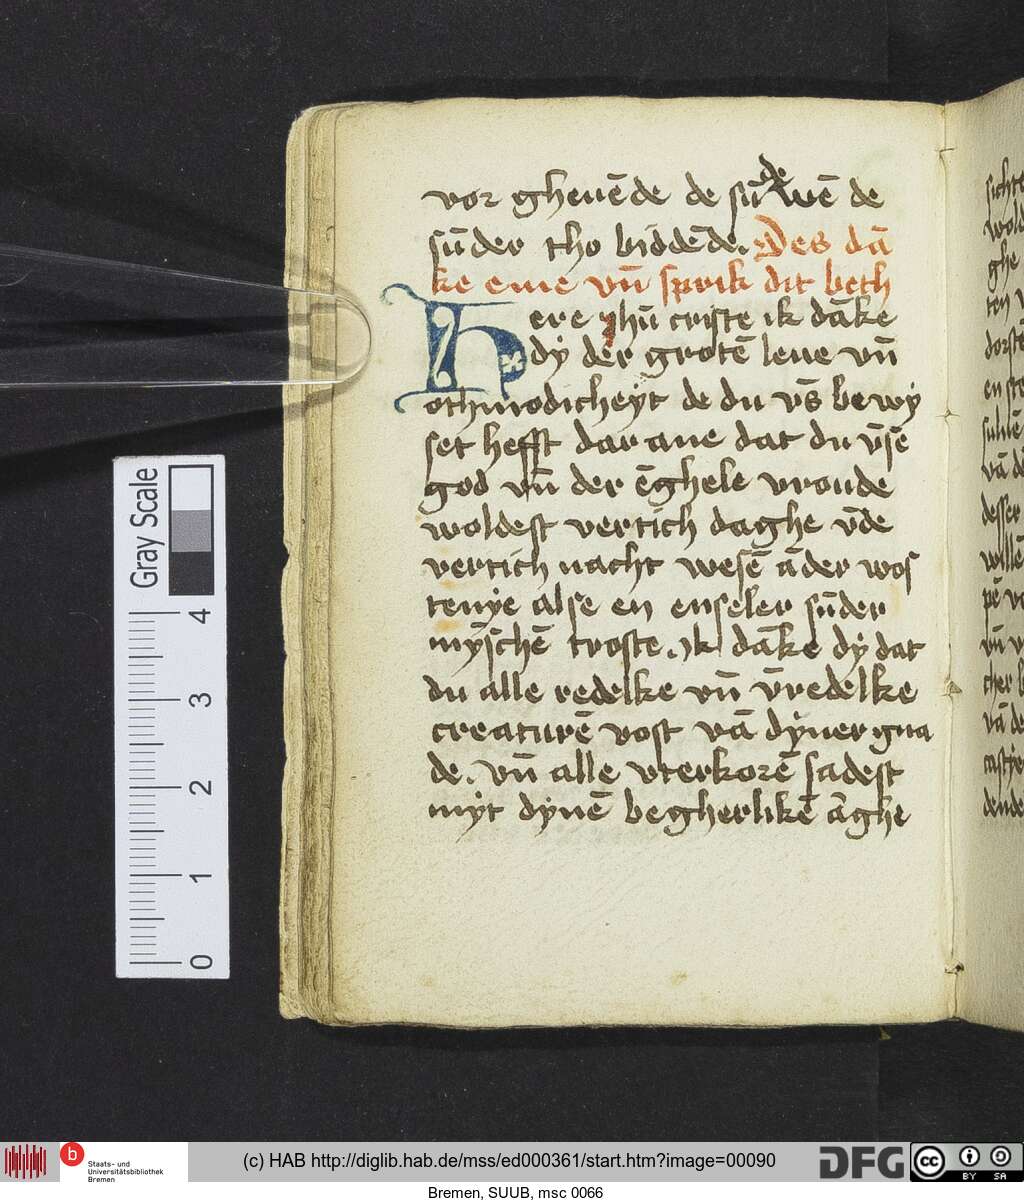 vor gheuēde de sūdewē de
sūder tho biddēde. Des dā
ke eme vn̄ sprik dit beth
Here ihū criste ik dāke
dy der grotē leue vn̄
othmodicheyt de du vs̄ bewy
set hefft dar ane dat du vn̄se
god vn̄ der ēghele vroude
woldest vertich daghe vn̄de
vertich nacht wesē ā der wos
tenye alse en enseler sūder
mȳschē troste. Ik dāke dy dat
du alle redelke vn̄ vn̄redelke
creaturē vost vā dyner gna
de. vn̄ alle vterkorē sadest
myt dynē begherlikē āghe
Gray Scale
4
3
2
1
0
b
Staats- und
Universitätsbibliothek
Bremen
(c) HAB http://diglib.hab.de/mss/ed000361/start.htm?image=00090
DFG
cc
BY SA
Bremen, SUUB, msc 0066